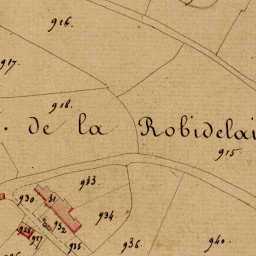 916.
917.
918.
de la Robidelai
915
933
930
31
934
932
935
936
940.